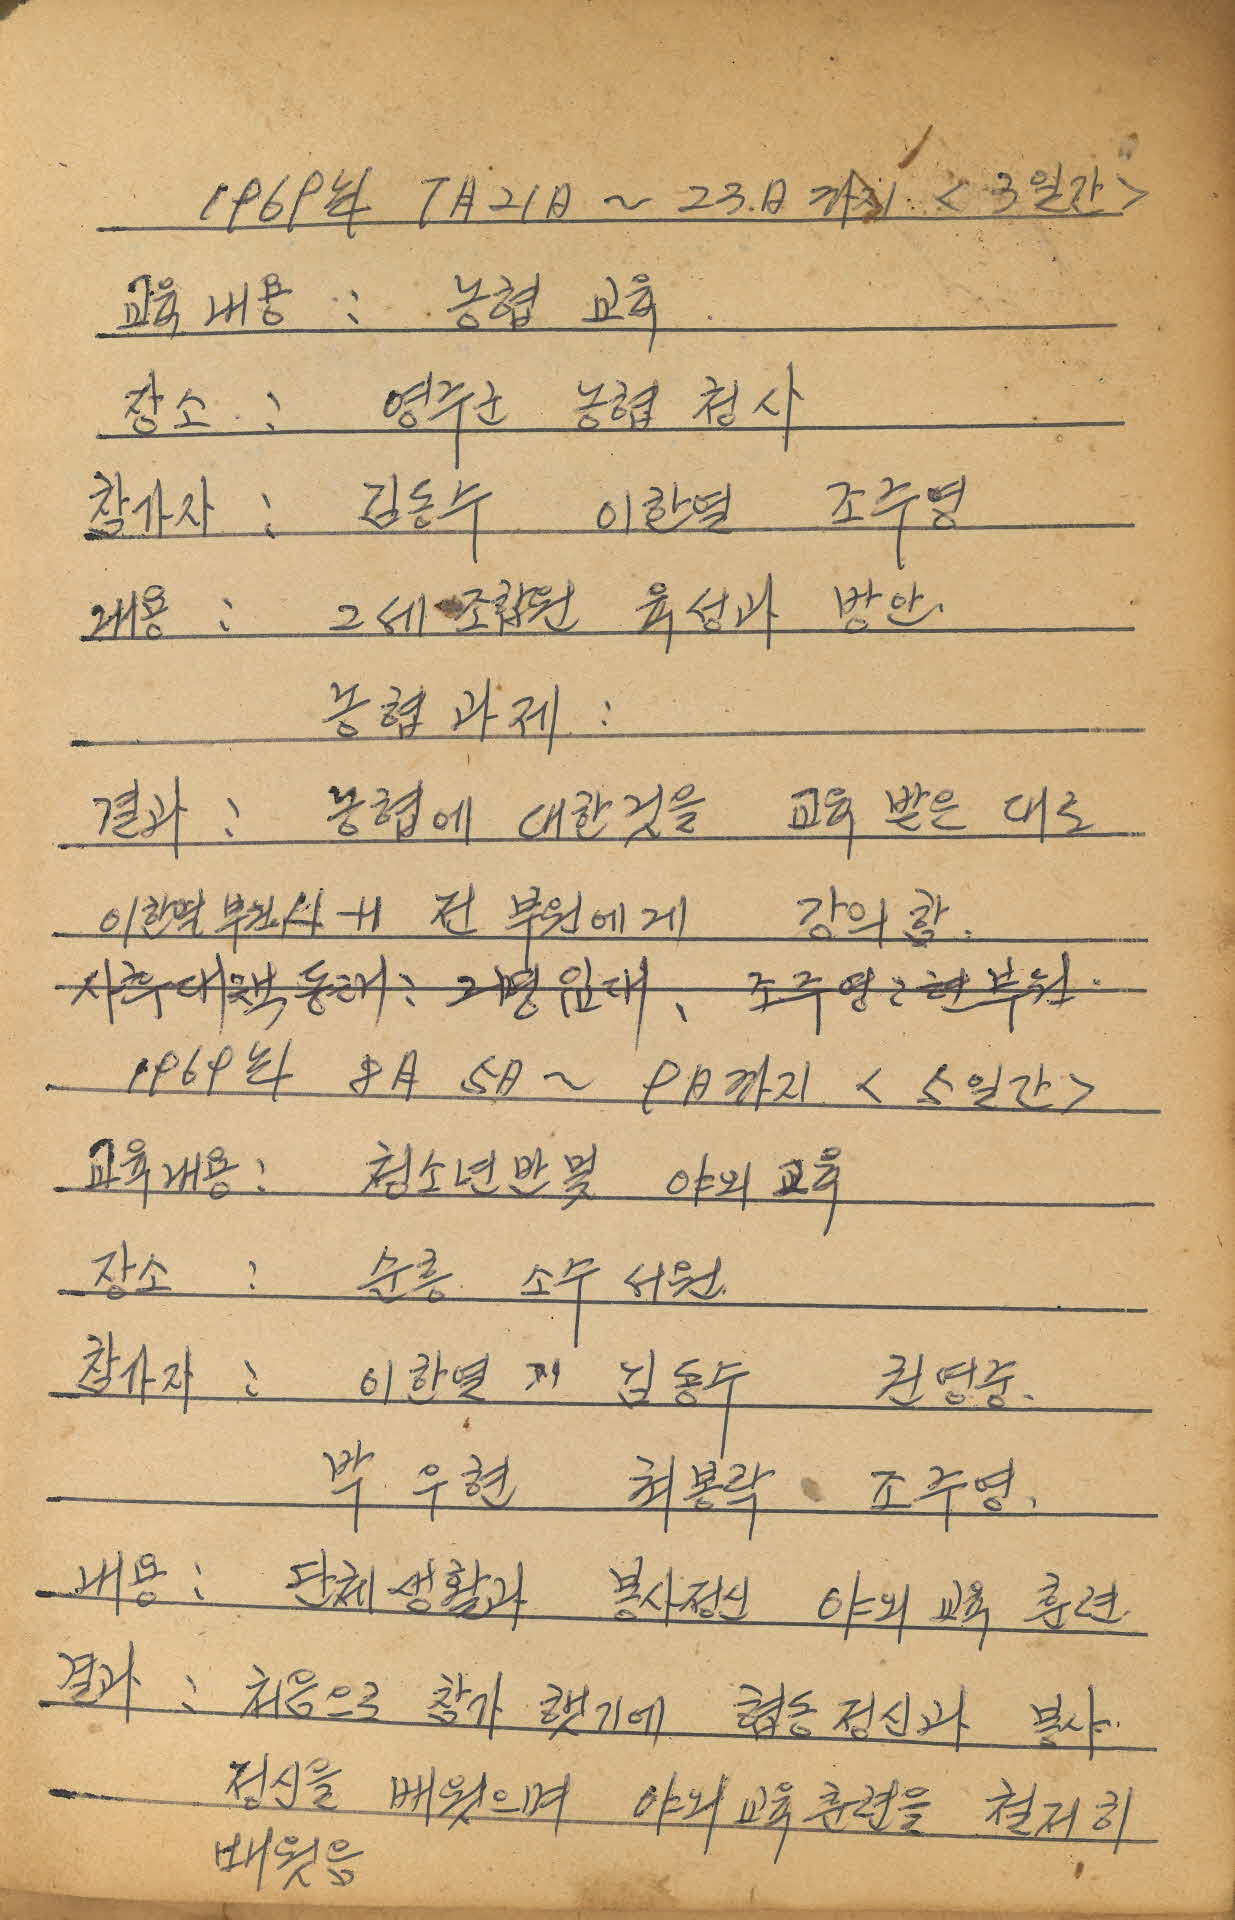 1969년 7月 21日 ~ 23.日 까지 <3일간>
교육내용 : 농협 교육
장소 : 영주군 농협 청사
참가자 : 김동수 이한열 조주영
내용 : 2세 조합원 육성과 방안.
농협과제 :
결과 : 농협에 대한것을 교육 받은 대로
이한열 부원 전 부원에게 강의함.
조주영 부원.
1969년 8月 5日 ~ 9日까지 <5일간>
교육내용 : 청소년반 및 야외교육
장소 : 순흥 소수서원.
참가자 : 이한열 김동수 권영중.
박우현 최봉락 조주영.
내용 : 단체생활과 봉사정신 야외 교육 훈련.
결과 : 처음으로 참가 햇기에 협동정신과 봉사
정신을 배웟으며 야외교육훈련을 철저히
배웟음